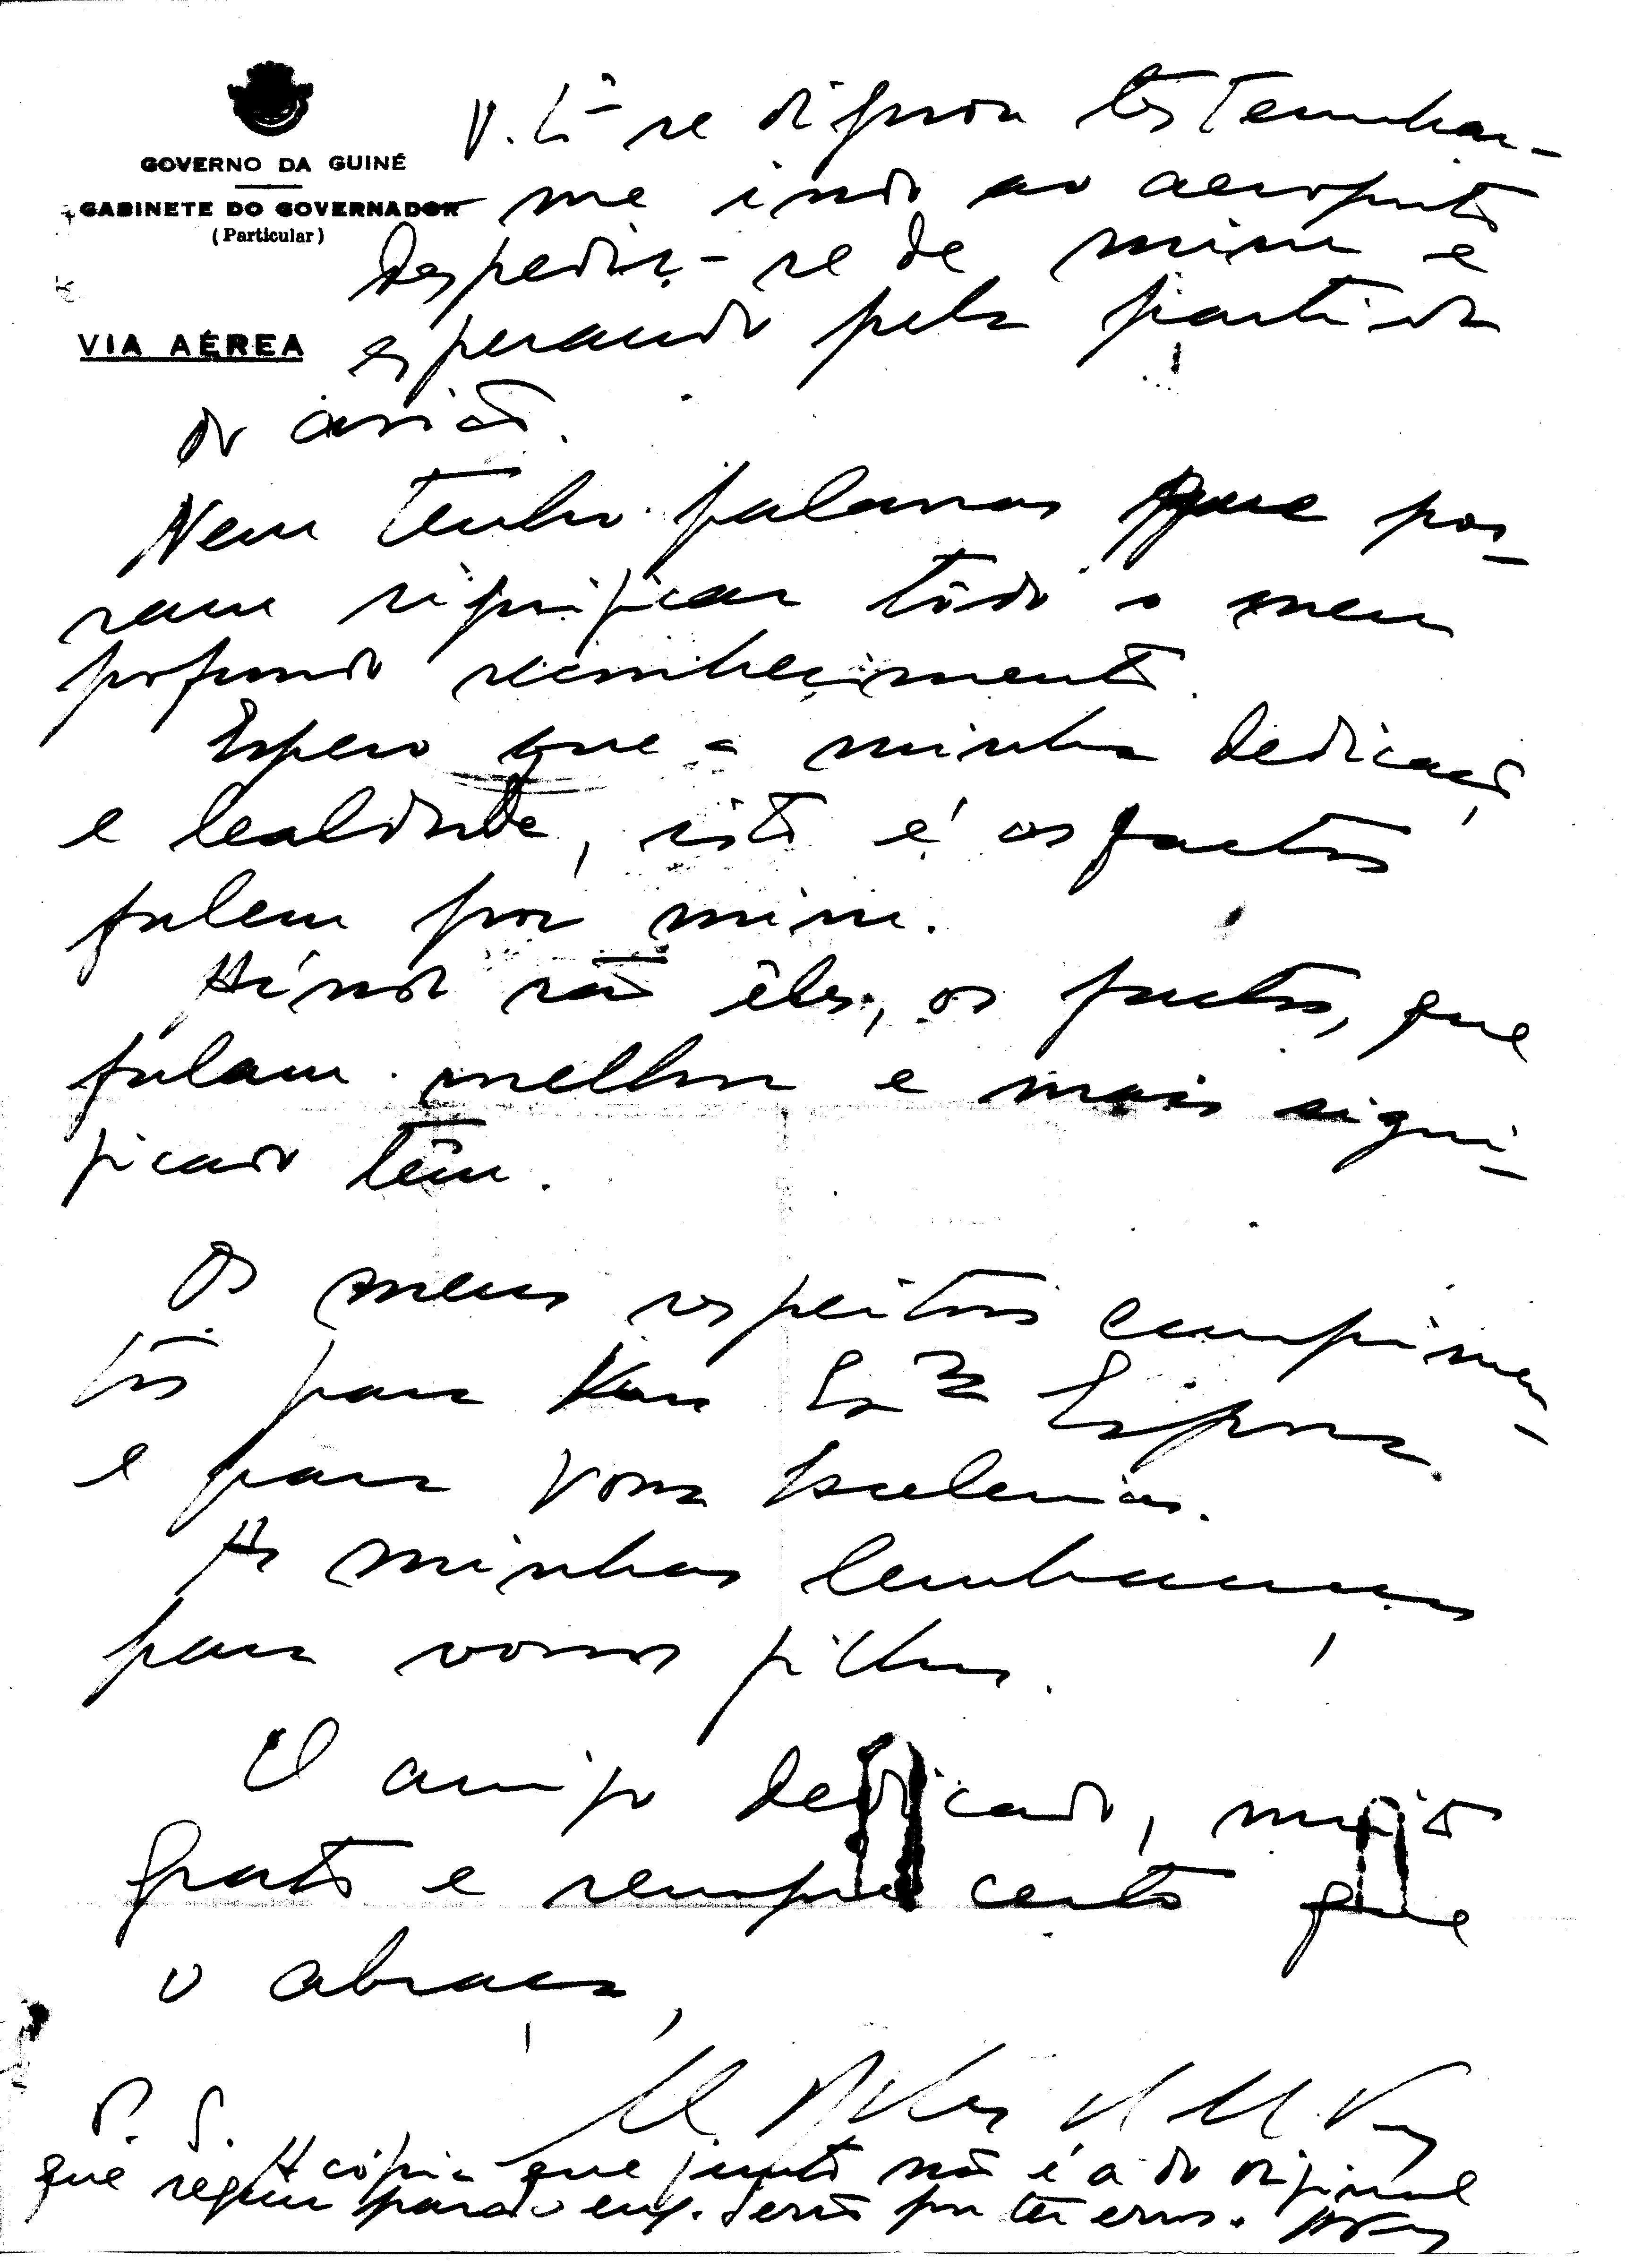 GOVERNO DA GUINÉ
GABINETE DO GOVERNADOR
(Particular)
VIA AÉREA
V. Exª se dignou testemunhar-
me indo ao aeroporto
despedir-se de mim e
esperando pela partida
do avião.
Nem tenho palavras que pos-
sam significar todo o meu
profundo reconhecimento.
Espero que a minha dedicação
e lealdade, isto é os factos
falem por mim.
Ainda são êles, os factos, que
falam melhor e mais signi-
ficado têm.
Os meus respeitosos cumprimen-
tos para Sua Exma Esposa
e para Vossa Excelência.
As minhas lembranças
para vossos filhos.
O amigo dedicado, muito
grato e sempre certo que
o abraça,
P. S.
A cópia que junto não é a do original
que seguiu para o eng. por ter erros.